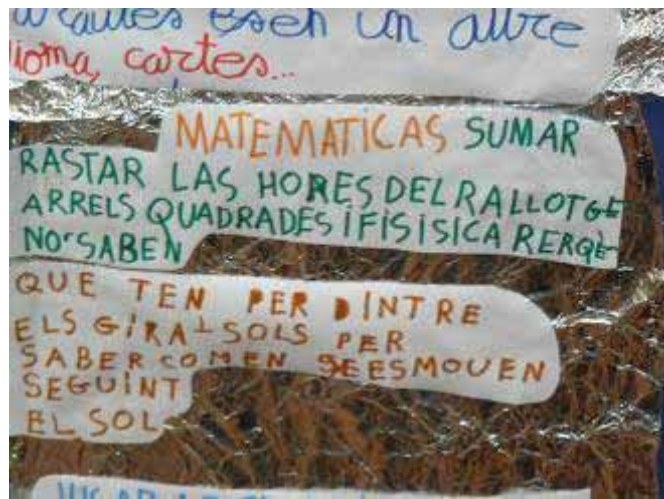 en un altre
ioma, cartes...
MATEMATICAS SUMAR
RASTAR LAS HORES DEL RALLOTGE
ARRELS QUADRADES I FISISICA RERQE
NO SABEN
QUE TEN PER DINTRE
ELS GIRALSOLS PER
SABER COM EN SEESMOUEN
SEGUINT
EL SOL